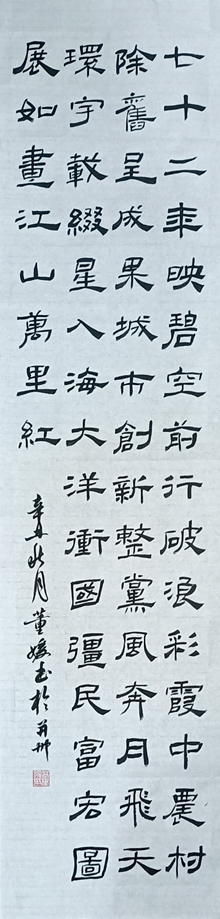 七十二年映碧空前行破浪彩霞中農村
除舊呈成果城市創新整黨風奔月飛天
環宇載綴星入海大洋衝國疆民富宏圖
展如畫江山萬里紅
辛丑秋月董媛書於并州